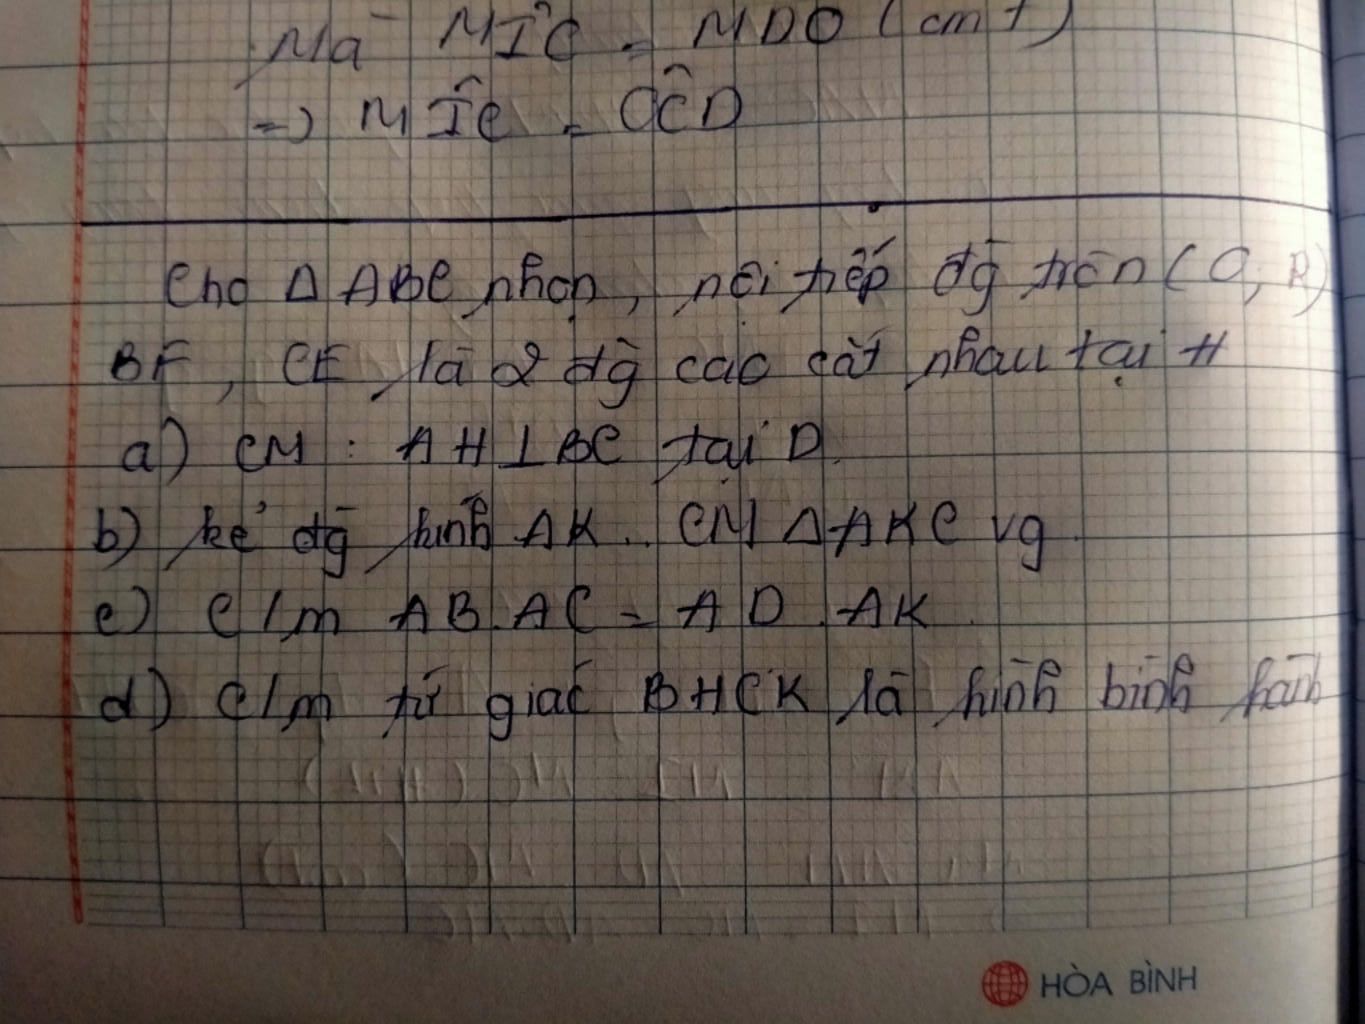 Mà MIC = MDO (cmt)
=> MIC = OCD
Cho Δ ABC nhọn, nội tiếp đg tròn (O; R)
BF, CE là 2 đg cao cắt nhau tại H
a) CM : AH ⊥ BC tại D.
b) kẻ đg kính AK. CM Δ AKC vg.
c) C/m AB.AC = AD.AK.
d) C/m tứ giác BHCK là hình bình hành
HÒA BÌNH